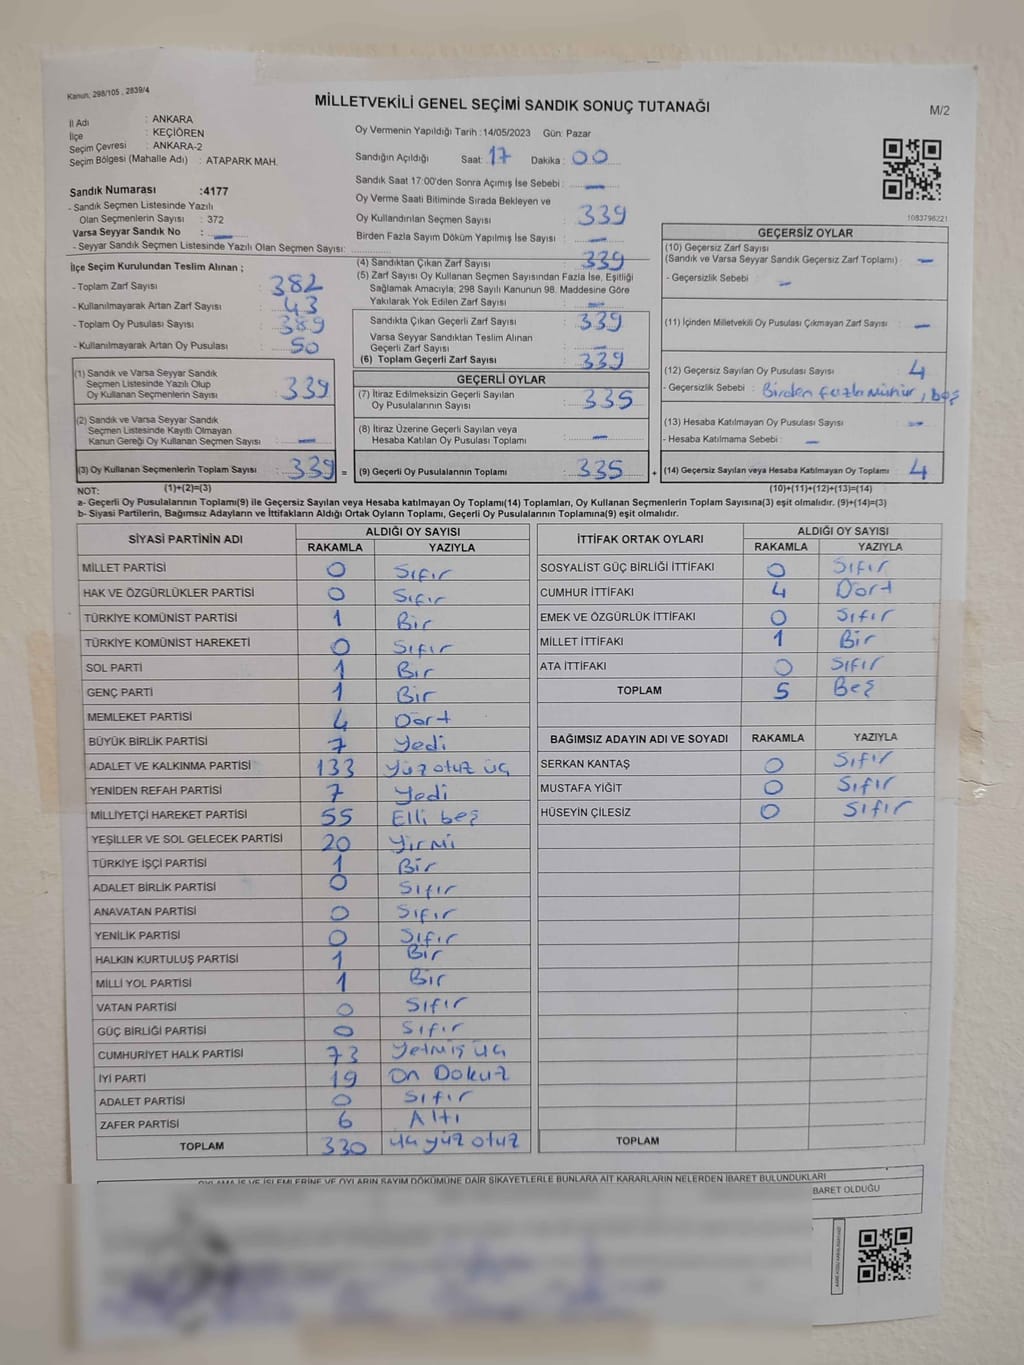 Kanun, 298/105 , 2839/4
MİLLETVEKİLİ GENEL SEÇİMİ SANDIK SONUÇ TUTANAĞI
M/2
İl Adı : ANKARA
İlçe : KEÇİÖREN
Seçim Çevresi : ANKARA-2
Seçim Bölgesi (Mahalle Adı) : ATAPARK MAH.
Sandık Numarası :4177
- Sandık Seçmen Listesinde Yazılı
Olan Seçmenlerin Sayısı : 372
Varsa Seyyar Sandık No : —
- Seyyar Sandık Seçmen Listesinde Yazılı Olan Seçmen Sayısı:
Oy Vermenin Yapıldığı Tarih :14/05/2023 Gün: Pazar
Sandığın Açıldığı Saat: 17 Dakika : 00
Sandık Saat 17:00'den Sonra Açımış İse Sebebi : —
Oy Verme Saati Bitiminde Sırada Bekleyen ve
Oy Kullandırılan Seçmen Sayısı : 339
Birden Fazla Sayım Döküm Yapılmış İse Sayısı : —
İlçe Seçim Kurulundan Teslim Alınan ;
- Toplam Zarf Sayısı : 382
- Kullanılmayarak Artan Zarf Sayısı : 43
- Toplam Oy Pusulası Sayısı : 389
- Kullanılmayarak Artan Oy Pusulası : 50
(1) Sandık ve Varsa Seyyar Sandık
Seçmen Listesinde Yazılı Olup
Oy Kullanan Seçmenlerin Sayısı : 339
(2) Sandık ve Varsa Seyyar Sandık
Seçmen Listesinde Kayıtlı Olmayan
Kanun Gereği Oy Kullanan Seçmen Sayısı : —
(3) Oy Kullanan Seçmenlerin Toplam Sayısı : 339 =
(4) Sandıktan Çıkan Zarf Sayısı : 339
(5) Zarf Sayısı Oy Kullanan Seçmen Sayısından Fazla İse, Eşitliği
Sağlamak Amacıyla; 298 Sayılı Kanunun 98. Maddesine Göre
Yakılarak Yok Edilen Zarf Sayısı : —
Sandıkta Çıkan Geçerli Zarf Sayısı : 339
Varsa Seyyar Sandıktan Teslim Alınan
Geçerli Zarf Sayısı : —
(6) Toplam Geçerli Zarf Sayısı : 339
GEÇERLİ OYLAR
(7) İtiraz Edilmeksizin Geçerli Sayılan
Oy Pusulalarının Sayısı : 335
(8) İtiraz Üzerine Geçerli Sayılan veya
Hesaba Katılan Oy Pusulaları Toplamı : —
(9) Geçerli Oy Pusulalarının Toplamı : 335 +
1083798221
GEÇERSİZ OYLAR
(10) Geçersiz Zarf Sayısı
(Sandık ve Varsa Seyyar Sandık Geçersiz Zarf Toplamı) : —
- Geçersizlik Sebebi : —
(11) İçinden Milletvekili Oy Pusulası Çıkmayan Zarf Sayısı : —
(12) Geçersiz Sayılan Oy Pusulası Sayısı : 4
- Geçersizlik Sebebi : Birden fazla mühür, boş
(13) Hesaba Katılmayan Oy Pusulası Sayısı : —
- Hesaba Katılmama Sebebi : —
(14) Geçersiz Sayılan veya Hesaba Katılmayan Oy Toplamı : 4
NOT: (1)+(2)=(3) (10)+(11)+(12)+(13)=(14)
a- Geçerli Oy Pusulalarının Toplamı(9) ile Geçersiz Sayılan veya Hesaba katılmayan Oy Toplamı(14) Toplamları, Oy Kullanan Seçmenlerin Toplam Sayısına(3) eşit olmalıdır. (9)+(14)=(3)
b- Siyasi Partilerin, Bağımsız Adayların ve İttifakların Aldığı Ortak Oyların Toplamı, Geçerli Oy Pusulalarının Toplamına(9) eşit olmalıdır.
SİYASİ PARTİNİN ADI ALDIĞI OY SAYISI
RAKAMLA YAZIYLA
MİLLET PARTİSİ 0 Sıfır
HAK VE ÖZGÜRLÜKLER PARTİSİ 0 Sıfır
TÜRKİYE KOMÜNİST PARTİSİ 1 Bir
TÜRKİYE KOMÜNİST HAREKETİ 0 Sıfır
SOL PARTİ 1 Bir
GENÇ PARTİ 1 Bir
MEMLEKET PARTİSİ 4 Dört
BÜYÜK BİRLİK PARTİSİ 7 Yedi
ADALET VE KALKINMA PARTİSİ 133 Yüz otuz üç
YENİDEN REFAH PARTİSİ 7 Yedi
MİLLİYETÇİ HAREKET PARTİSİ 55 Elli beş
YEŞİLLER VE SOL GELECEK PARTİSİ 20 Yirmi
TÜRKİYE İŞÇİ PARTİSİ 1 Bir
ADALET BİRLİK PARTİSİ 0 Sıfır
ANAVATAN PARTİSİ 0 Sıfır
YENİLİK PARTİSİ 0 Sıfır
HALKIN KURTULUŞ PARTİSİ 1 Bir
MİLLİ YOL PARTİSİ 1 Bir
VATAN PARTİSİ 0 Sıfır
GÜÇ BİRLİĞİ PARTİSİ 0 Sıfır
CUMHURİYET HALK PARTİSİ 73 Yetmiş üç
İYİ PARTİ 19 On Dokuz
ADALET PARTİSİ 0 Sıfır
ZAFER PARTİSİ 6 Altı
TOPLAM 330 üç yüz otuz
İTTİFAK ORTAK OYLARI ALDIĞI OY SAYISI
RAKAMLA YAZIYLA
SOSYALİST GÜÇ BİRLİĞİ İTTİFAKI 0 Sıfır
CUMHUR İTTİFAKI 4 Dört
EMEK VE ÖZGÜRLÜK İTTİFAKI 0 Sıfır
MİLLET İTTİFAKI 1 Bir
ATA İTTİFAKI 0 Sıfır
TOPLAM 5 Beş
BAĞIMSIZ ADAYIN ADI VE SOYADI RAKAMLA YAZIYLA
SERKAN KANTAŞ 0 Sıfır
MUSTAFA YİĞİT 0 Sıfır
HÜSEYİN ÇİLESİZ 0 Sıfır
TOPLAM
OYLAMA İŞ VE İŞLEMLERİNE VE OYLARIN SAYIM DÖKÜMÜNE DAİR ŞİKAYETLERLE BUNLARA AİT KARARLARIN NELERDEN İBARET BULUNDUKLARI
BARET OLDUĞU